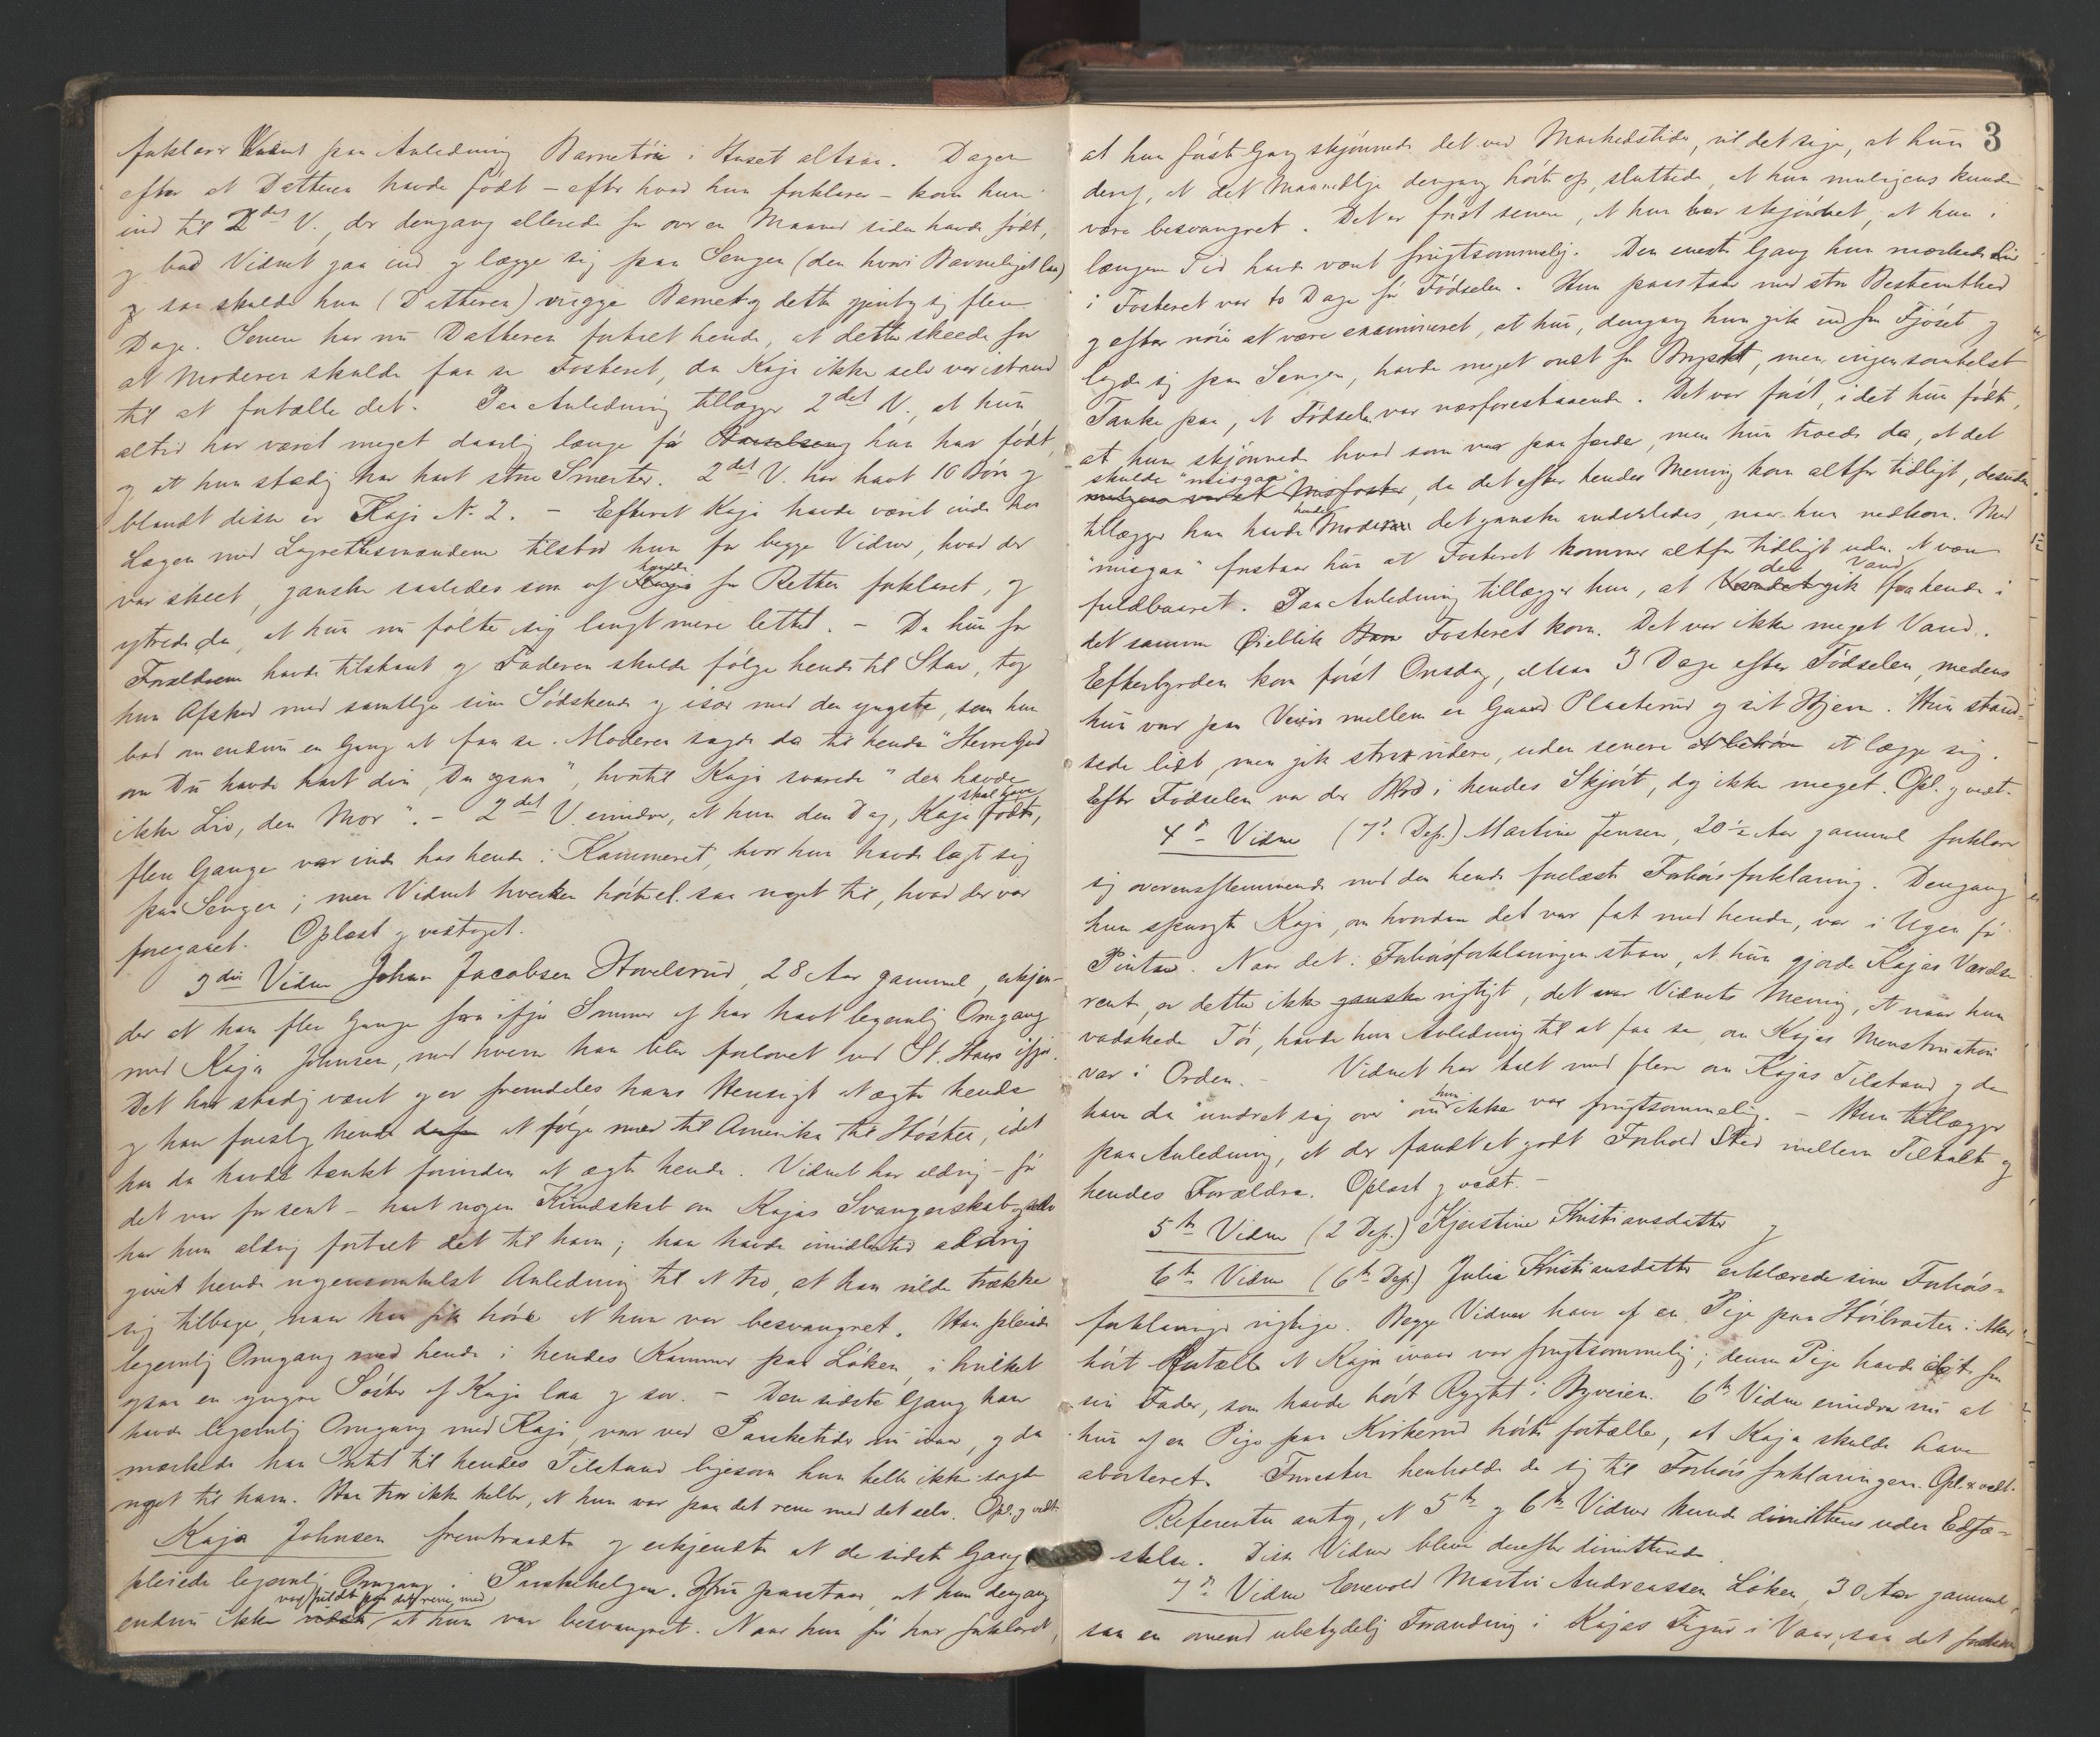 forklarer Vidnet paa Anledning Barnetøi i Huset altsaa. Dagen
efter at Datteren havde født – efter hvad hun forklarer – kom hun
ind til 2det V., der dengang allerede for over en Maaned siden havde født,
og bad Vidnet gaa ind og lægge sig paa Sengen (den hvori Barneliget laa)
og saa skulde hun (Datteren) vugge Barnet og dette gjentog sig flere
Dage. Senere har nu Datteren fortalt hende, at dette skeede for
at Moderen skulde faa se Fosteret, da Kaja ikke selv var istand
til at fortælle det. Paa Anledning tillægger 2det V., at hun
altid har været meget daarlig længe før hun har født,
og at hun stadig har havt store Smerter. 2det V. har havt 10 Børn og
blandt disse er Kaja No 2. – Efterat Kaja havde været inde hos
Lægen med Lagrettesmændene tilstod hun for begge Vidner, hvad der
var skeet, ganske saaledes som af hende for Retten forklaret, og
ytrede da, at hun nu følte sig langt mere lettet. – Da hun for
Forældrene havde tilstaaet og Faderen skulde følge hende til Skar, tog
hun Afsked med samtlige sine Sødskende og især med den yngste, som hun
bad om endnu en Gang at faa se. Moderen sagde da til hende "Herregud
om Du havde havt din, Du ogsaa", hvortil Kaja svarede "den havde
ikke Liv, den Mor". – 2det V. erindrer, at hun den Dag, Kaja skal have født,
flere Gange var inde hos hende i Kammeret, hvor hun havde lagt sig
paa Sengen; men Vidnet hverken hørte el. saa noget til, hvad der var
foregaaet. Oplæst og vedtaget.
3die Vidne Johan Jacobsen Hovelsrud, 28 Aar gammel, erkjen-
der at han flere Gange fra ifjor Sommer af har havt legemlig Omgang
med Kaja Johnsen, med hvem han blev forlovet ved St. Hans ifjor.
Det har stadig været og er fremdeles hans Hensigt at ægte hende
og han foreslog hende at følge med til Amerika til Høsten, idet
han da havde tænkt forinden at ægte hende. Vidnet har aldrig – før
det var for sent – havt nogen Kundskab om Kajas Svangerskab og selv
har hun aldrig fortalt det til ham; han havde imidlertid aldrig
givet hende nogensomhelst Anledning til at tro, at han vilde trække
sig tilbage, naar han fik høre at hun var besvangret. Han pleiede
legemlig Omgang med hende i hendes Kammer paa Løken, i hvilket
ogsaa en yngre Søster af Kaja laa og sov. – Den sidste Gang han
havde legemlig Omgang med Kaja, var ved Paasketider nu ivaar, og da
mærkede han Intet til hendes Tilstand ligesom hun heller ikke sagde
noget til ham. Han tror ikke heller, at hun var paa det rene med det selv. Opl. og vedt.
Kaja Johnsen fremtraadte og erkjendte at de sidste Gang
pleiede legemlig Omgang i Paaskehelgen. Hun paastaar, at hun dengang
endnu ikke var fuldt paa det rene med at hun var besvangret. Naar hun før har forklaret,
3
at hun først Gang skjønnede det ved Markedstider, vil det sige, at hun
deraf, at det Maanedlige dengang hørte op, sluttede, at hun muligens kunde
være besvangret. Det er først senere, at hun har skjønnet, at hun i
længere Tid havde været frugtsommelig. Den eneste Gang hun mærkede Liv
i Fosteret var to Dage før Fødselen. Hun paastaar med stor Bestemthed
og efter nøie at være examineret, at hun, dengang hun gik ind fra Fjøset og
lagde sig paa Sengen, havde meget ondt for Brystet, men ingensomhelst
Tanke paa, at Fødselen var nærforestaaende. Det var først, i det hun fødte,
at hun skjønnede hvad som var paa færde, men hun troede da, at det
skulde "misgaa", da det efter hendes Mening kom altfor tidligt, desuden
tillægger hun havde hendes Moder det ganske anderledes, naar hun nedkom. Med
"misgaa" forstaar hun at Fosteret kommer altfor tidligt uden at være
fuldbaaret. Paa Anledning tillægger hun, at der gik Vand fra hende i
det samme Øieblik Fosteret kom. Det var ikke meget Vand.
Efterbyrden kom først Onsdag, altsaa 3 Dage efter Fødselen, medens
hun var paa Veien mellem en Gaard Plasterud og sit Hjem. Hun stand-
sede lidt, men gik strax videre, uden senere at lægge sig.
Efter Fødselen var der Blod i hendes Skjørt, dog ikke meget. Opl. og vedt.
4de Vidne (7de Dep.) Martine Jensen, 20 1/2 Aar gammel forklarer
sig overensstemmende med den hende forelæste Forhørsforklaring. Dengang
hun spurgte Kaja, om hvordan det var fat med hende, var i Ugen før
Pintse. Naar det i Forhørsforklaringen staar, at hun gjorde Kajas Værelse
rent, er dette ikke ganske rigtigt, det var Vidnets Mening, at naar hun
vadskede Tøi, havde hun Anledning til at faa se, om Kajas Menstruation
var i Orden. – Vidnet har talt med flere om Kajas Tilstand og de
have da "undret sig over" om hun ikke var frugtsommelig. – Hun tillægger
paa Anledning, at der fandt et godt Forhold Sted mellem Tiltalte og
hendes Forældre. Oplæst og vedt. –
5te Vidne (2 Dep.) Kjerstine Kristiansdatter og
6te Vidne (6te Dep.) Julie Kristiansdatter erklærede sine Forhørs-
forklaringer rigtige. Begge Vidner have af en Pige paa Høibraaten i Aker
hørt fortælle at Kaja ivaar var frugtsommelig; denne Pige havde hørt det fra
sin Fader, som havde hørt Rygtet i Byveien. 6te Vidne erindrer nu at
hun af en Pige paa Kirkerud hørte fortælle, at Kaja skulde have
aborteret. Forresten henholdt de sig til Forhørsforklaringen. Opl. & vedt.
Referenten antog, at 5te og 6te Vidner kunde dimitteres uden Edfæ-
stelse. Disse Vidner bleve derefter dimitterede.
7de Vidne Enevold Martin Andreassen Løken, 30 Aar gammel,
saa en omend ubetydelig Forandring i Kajas Figur i Vaar, saa det